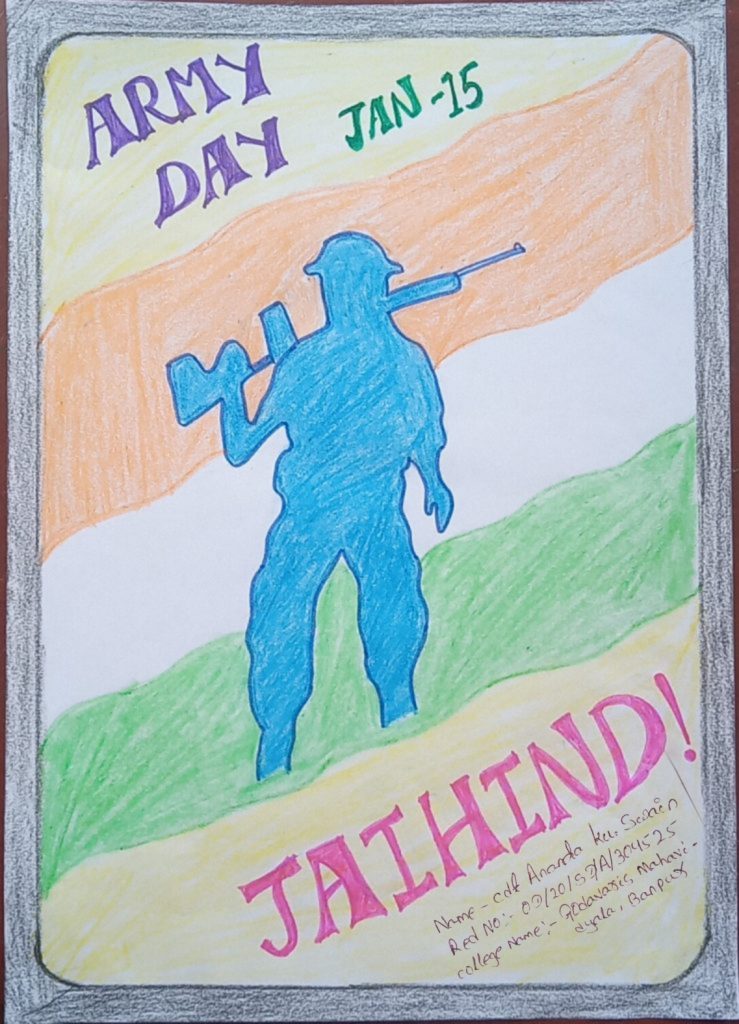 ARMY
DAY
JAN-15
JAIHIND!
Name - cdt Ananda ku. Swain
Red No:-
college name:- Godavaris, Mahavi-
dyala, Banpur